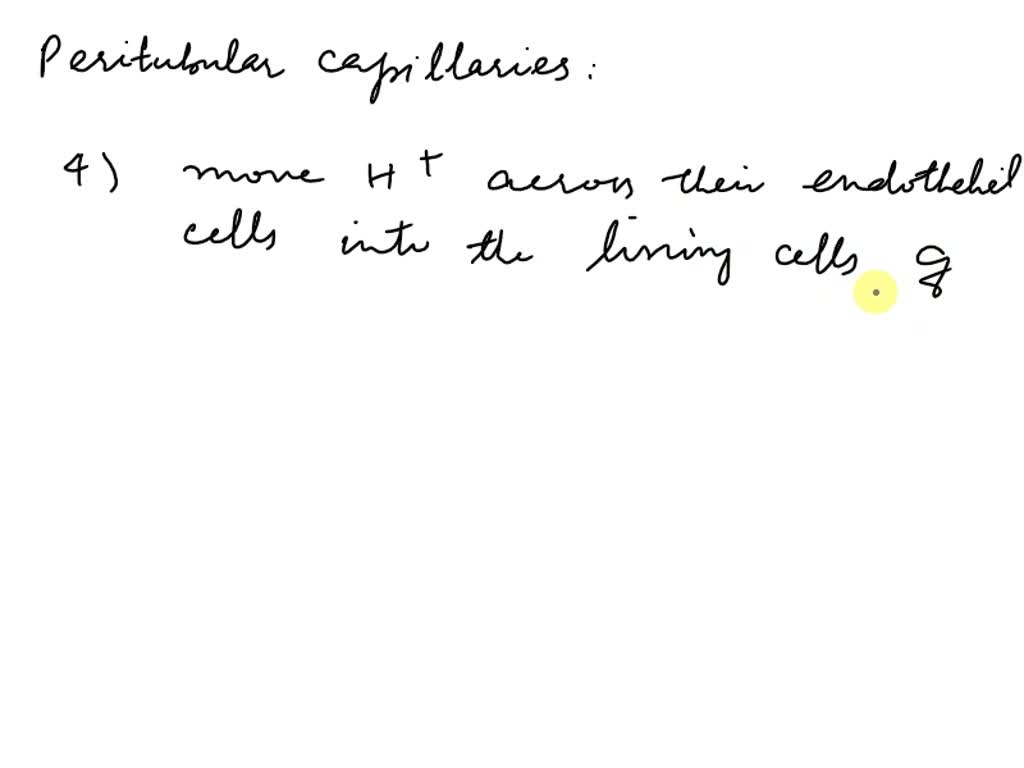 Peritubular capillaries:
4) move H+ across their endothelial
cells into the lining cells of